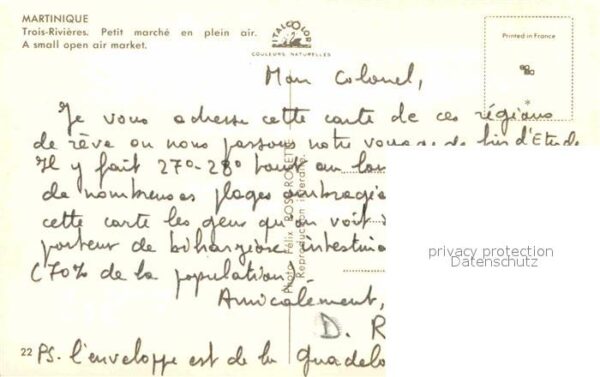 MARTINIQUE
Trois-Rivières. Petit marché en plein air.
A small open air market.
ITALCOLOR
COULEURS NATURELLES
Printed in France
Mon Colonel,
Je vous adresse cette carte de ces régions
de rêve ou nous passons notre voyage de fin d'Etude
Il y fait 27°-28° tout au lon
de nombreuses plages ombragé
cette carte les gens qu'on voit
porteur de bilharziose intestina
(70% de la population
Amicalement,
D. R
22 PS. l'enveloppe est de la Guadelo
Photo Félix ROSE-ROSETTE
Reproduction interdite
privacy protection
Datenschutz